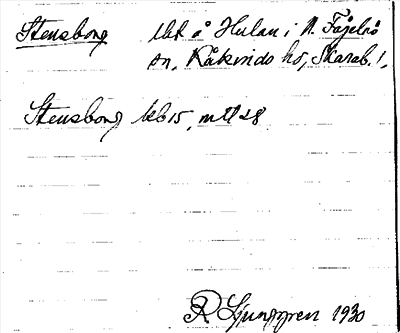 Stensborg lht å Hulan i N. Fågelås
sn, Kåkinds hd, Skarab. l.,
Stensborg kb 15, mtl 28
R Ljunggren 1930